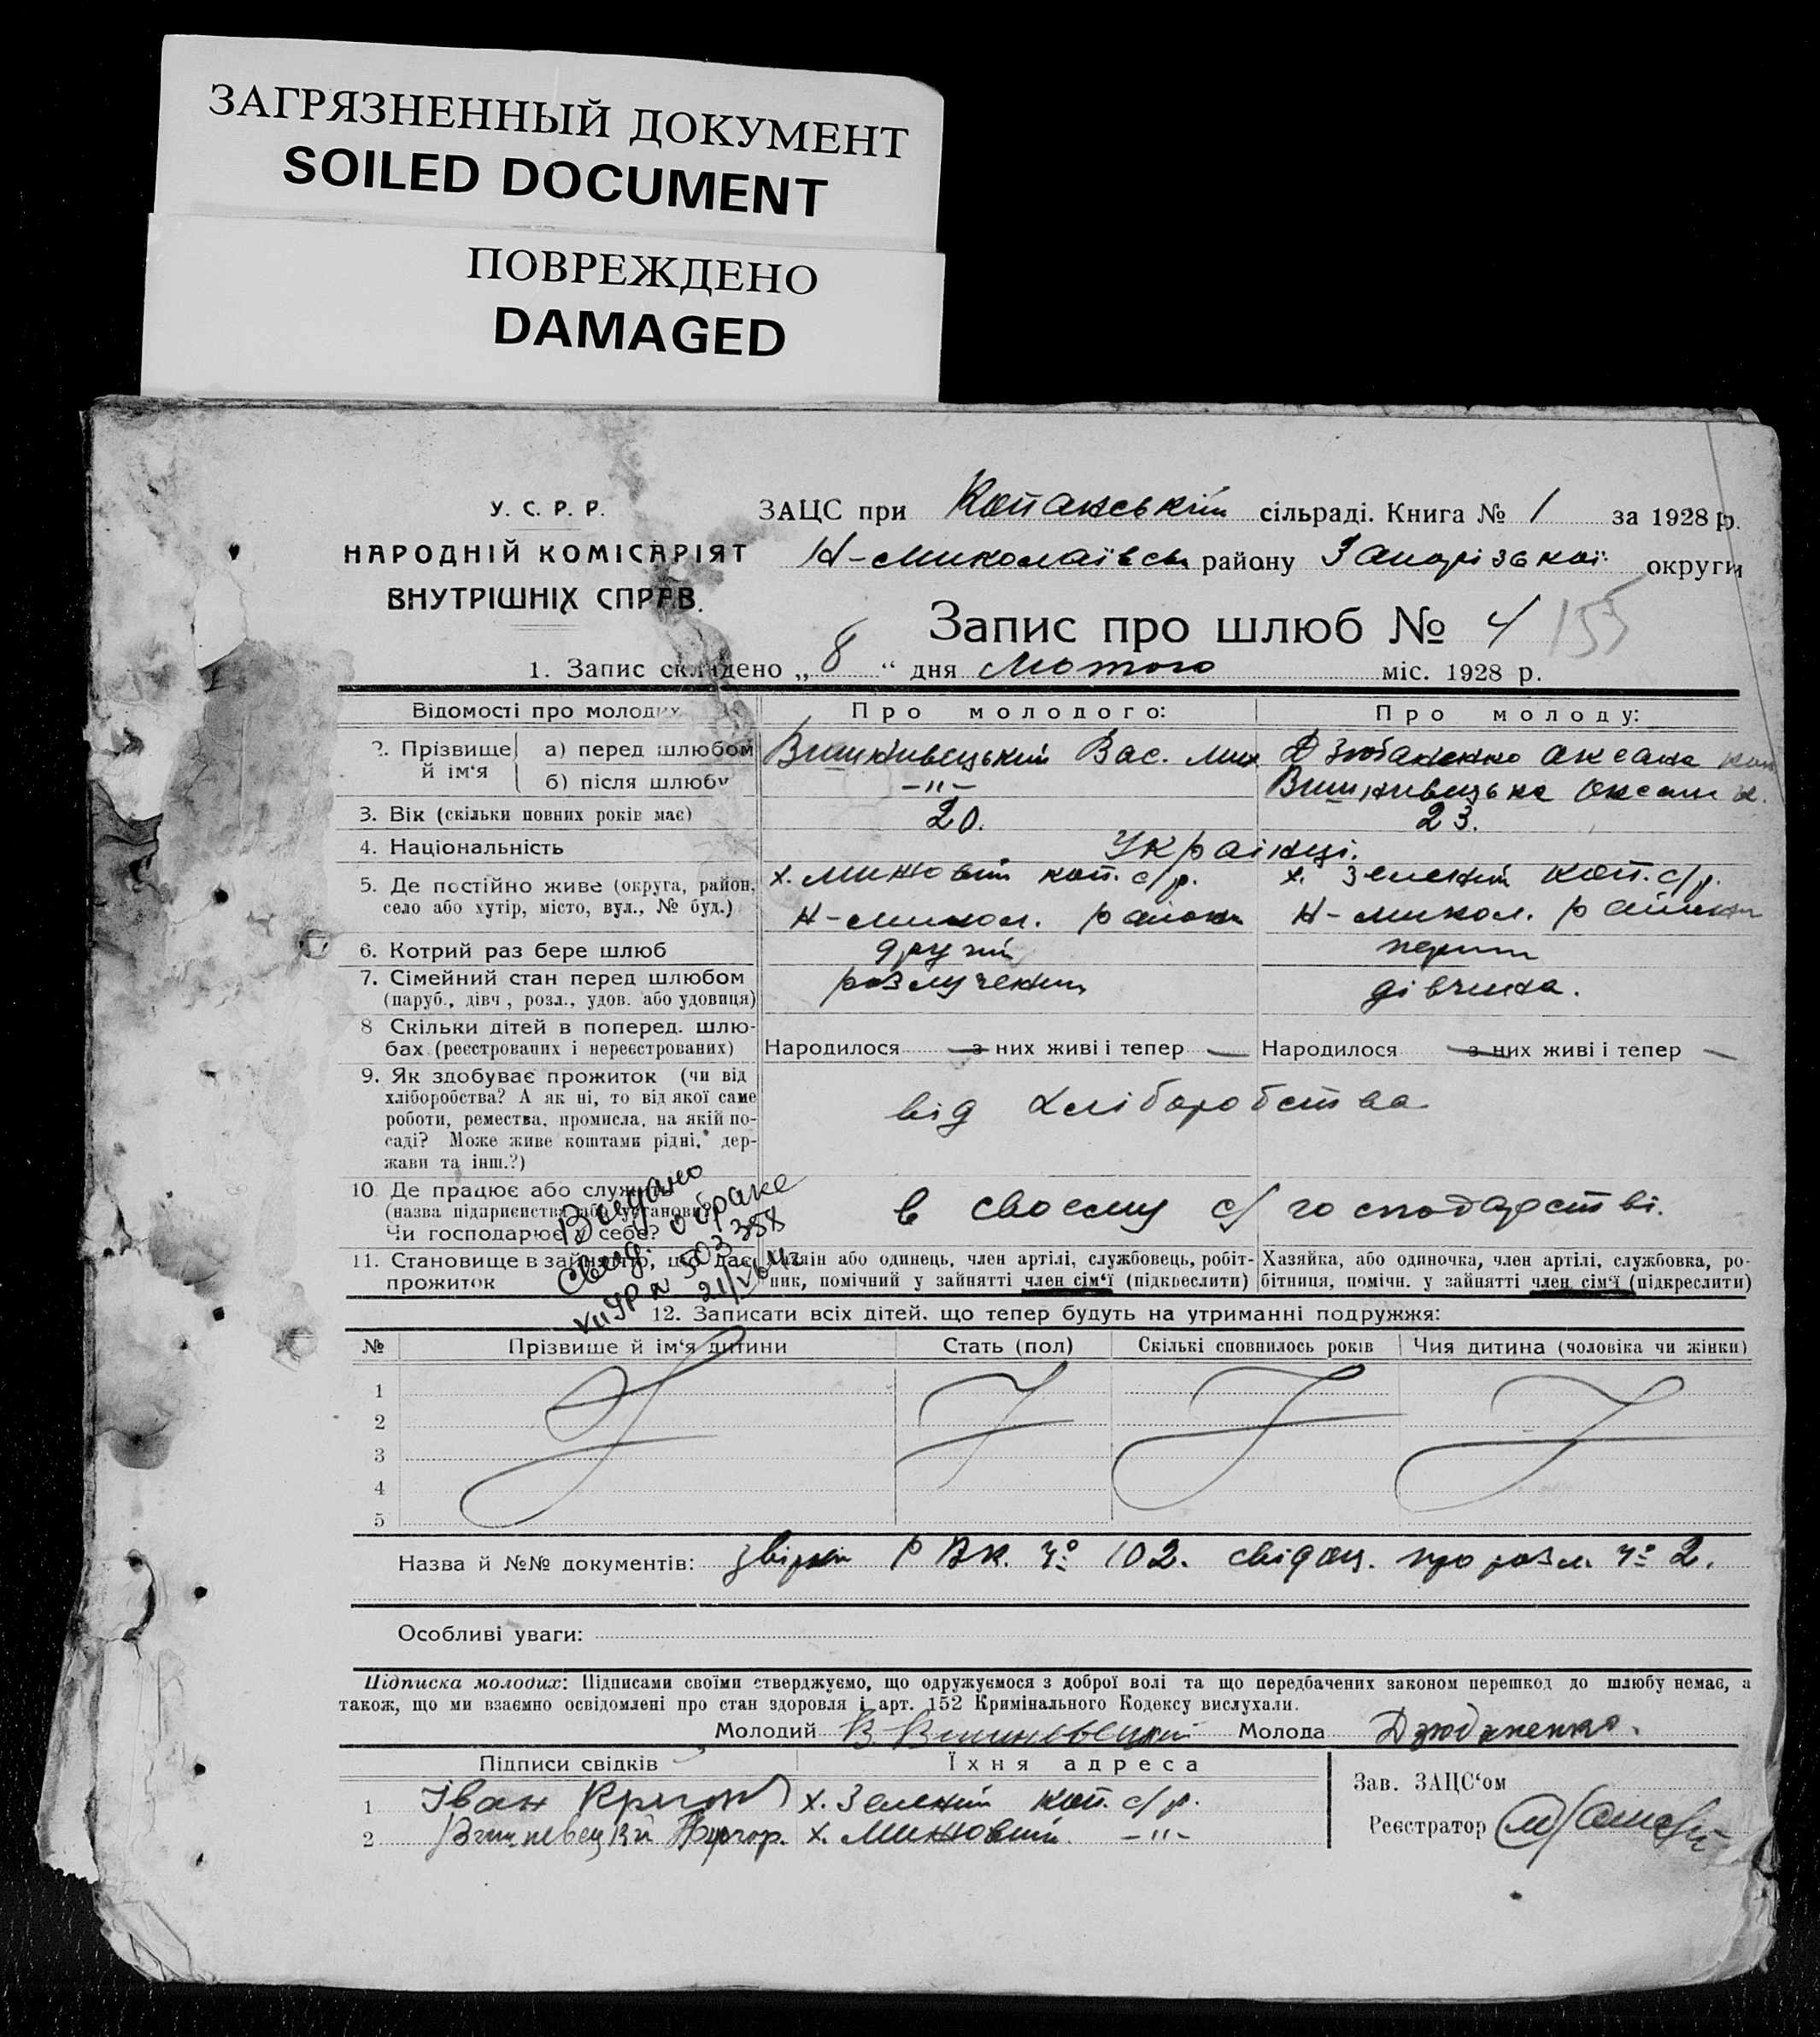 ЗАГРЯЗНЕННЫЙ ДОКУМЕНТ
SOILED DOCUMENT
ПОВРЕЖДЕНО
DAMAGED
У. С. Р. Р.
НАРОДНІЙ КОМІСАРІЯТ
ВНУТРІШНІХ СПРАВ.
ЗАЦС при Копанській сільраді. Книга № 1 за 1928 р.
Н-Миколаївськ району Запорізької округи
Запис про шлюб № 4 155
1. Запис складено „ 8 “ дня Лютого міс. 1928 р.
Відомості про молодих Про молодого: Про молоду:
2. Прізвище й ім‘я
а) перед шлюбом Вишнивецький Вас. Мих Дзюбаненко Оксана
б) після шлюбу —"— Вишнивецька Оксан
3. Вік (скільки повних років має) 20. 23.
4. Національність Українці.
5. Де постійно живе (округа, район, х. Минювий коп. с/р. х. Зелений коп. с/р.
село або хутір, місто, вул., № буд.) Н-микол. району Н-микол. району
6. Котрий раз бере шлюб другий перший
7. Сімейний стан перед шлюбом розлучений дівчина.
(паруб., дівч., розл., удов. або удовиця)
8 Скільки дітей в поперед. шлю-
бах (реєстрованих і нереєстрованих) Народилося — з них живі і тепер — Народилося — з них живі і тепер —
9. Як здобуває прожиток (чи від
хліборобства? А як ні, то від якої саме від хліборобства
роботи, ремества, промисла, на якій по-
саді? Може живе коштами рідні, дер-
жави та інш.?)
10 Де працює або служить
(назва підприємства або установи? в своєму с/господарстві.
Чи господарює у себе?
Видано
свид. о браке
503358
11. Становище в зайняттю, що дає Хазяїн або одинець, член артілі, службовець, робіт- Хазяйка, або одиночка, член артілі, службовка, ро-
прожиток ник, помічний у зайнятті член сім‘ї (підкреслити) бітниця, помічн. у зайнятті член сім‘ї (підкреслити)
12. Записати всіх дітей, що тепер будуть на утриманні подружжя:
№ Прізвище й ім‘я дитини Стать (пол) Скількі сповнилось років Чия дитина (чоловіка чи жінки)
1
2
3
4
5
Назва й №№ документів: РВК. № 102. свідоц. про розл. № 2.
Особливі уваги:
Підписка молодих: Підписами своїми стверджуємо, що одружуємося з доброї волі та що передбачених законом перешкод до шлюбу немає, а
також, що ми взаємно освідомлені про стан здоровля і арт. 152 Кримінального Кодексу вислухали.
Молодий В Вишневецкий Молода Дзюбаненко.
Підписи свідків Їхня адреса
1 Іван х. Зелений коп. с/р.
2 Вишневецкий х. Минювий —"—
Зав. ЗАЦС‘ом
Реєстратор